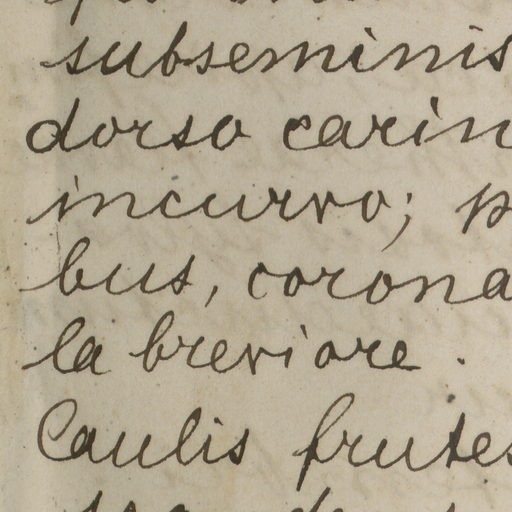 subseminis
dorso carin
incurvo; p
bus, corona
la breviore.
Caulis frutes